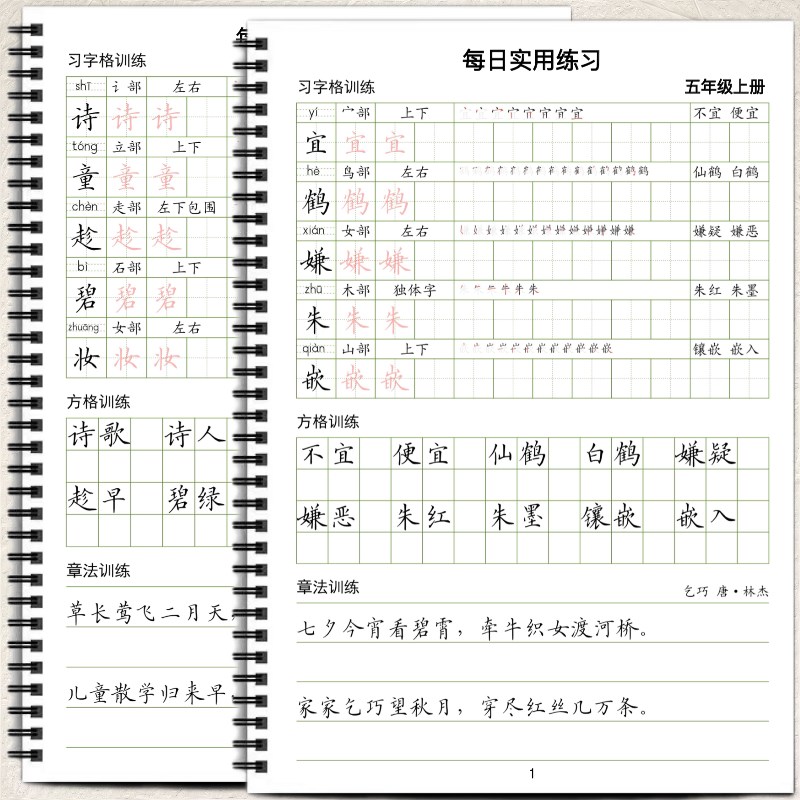 习字格训练
shī 讠部 左右
诗 诗 诗
tóng 立部 上下
童 童 童
chèn 走部 左下包围
趁 趁 趁
bì 石部 上下
碧 碧 碧
zhuāng 女部 左右
妆 妆 妆
方格训练
诗歌 诗人
趁早 碧绿
章法训练
草长莺飞二月天,
儿童散学归来早
每日实用练习
习字格训练 五年级上册
yí 宀部 上下 不宜 便宜
宜 宜 宜
hè 鸟部 左右 仙鹤 白鹤
鹤 鹤 鹤
xián 女部 左右 嫌疑 嫌恶
嫌 嫌 嫌
zhū 木部 独体字 朱红 朱墨
朱 朱 朱
qiàn 山部 上下 镶嵌 嵌入
嵌 嵌 嵌
方格训练
不宜 便宜 仙鹤 白鹤 嫌疑
嫌恶 朱红 朱墨 镶嵌 嵌入
章法训练 乞巧 唐·林杰
七夕今宵看碧霄，牵牛织女渡河桥。
家家乞巧望秋月，穿尽红丝几万条。
1